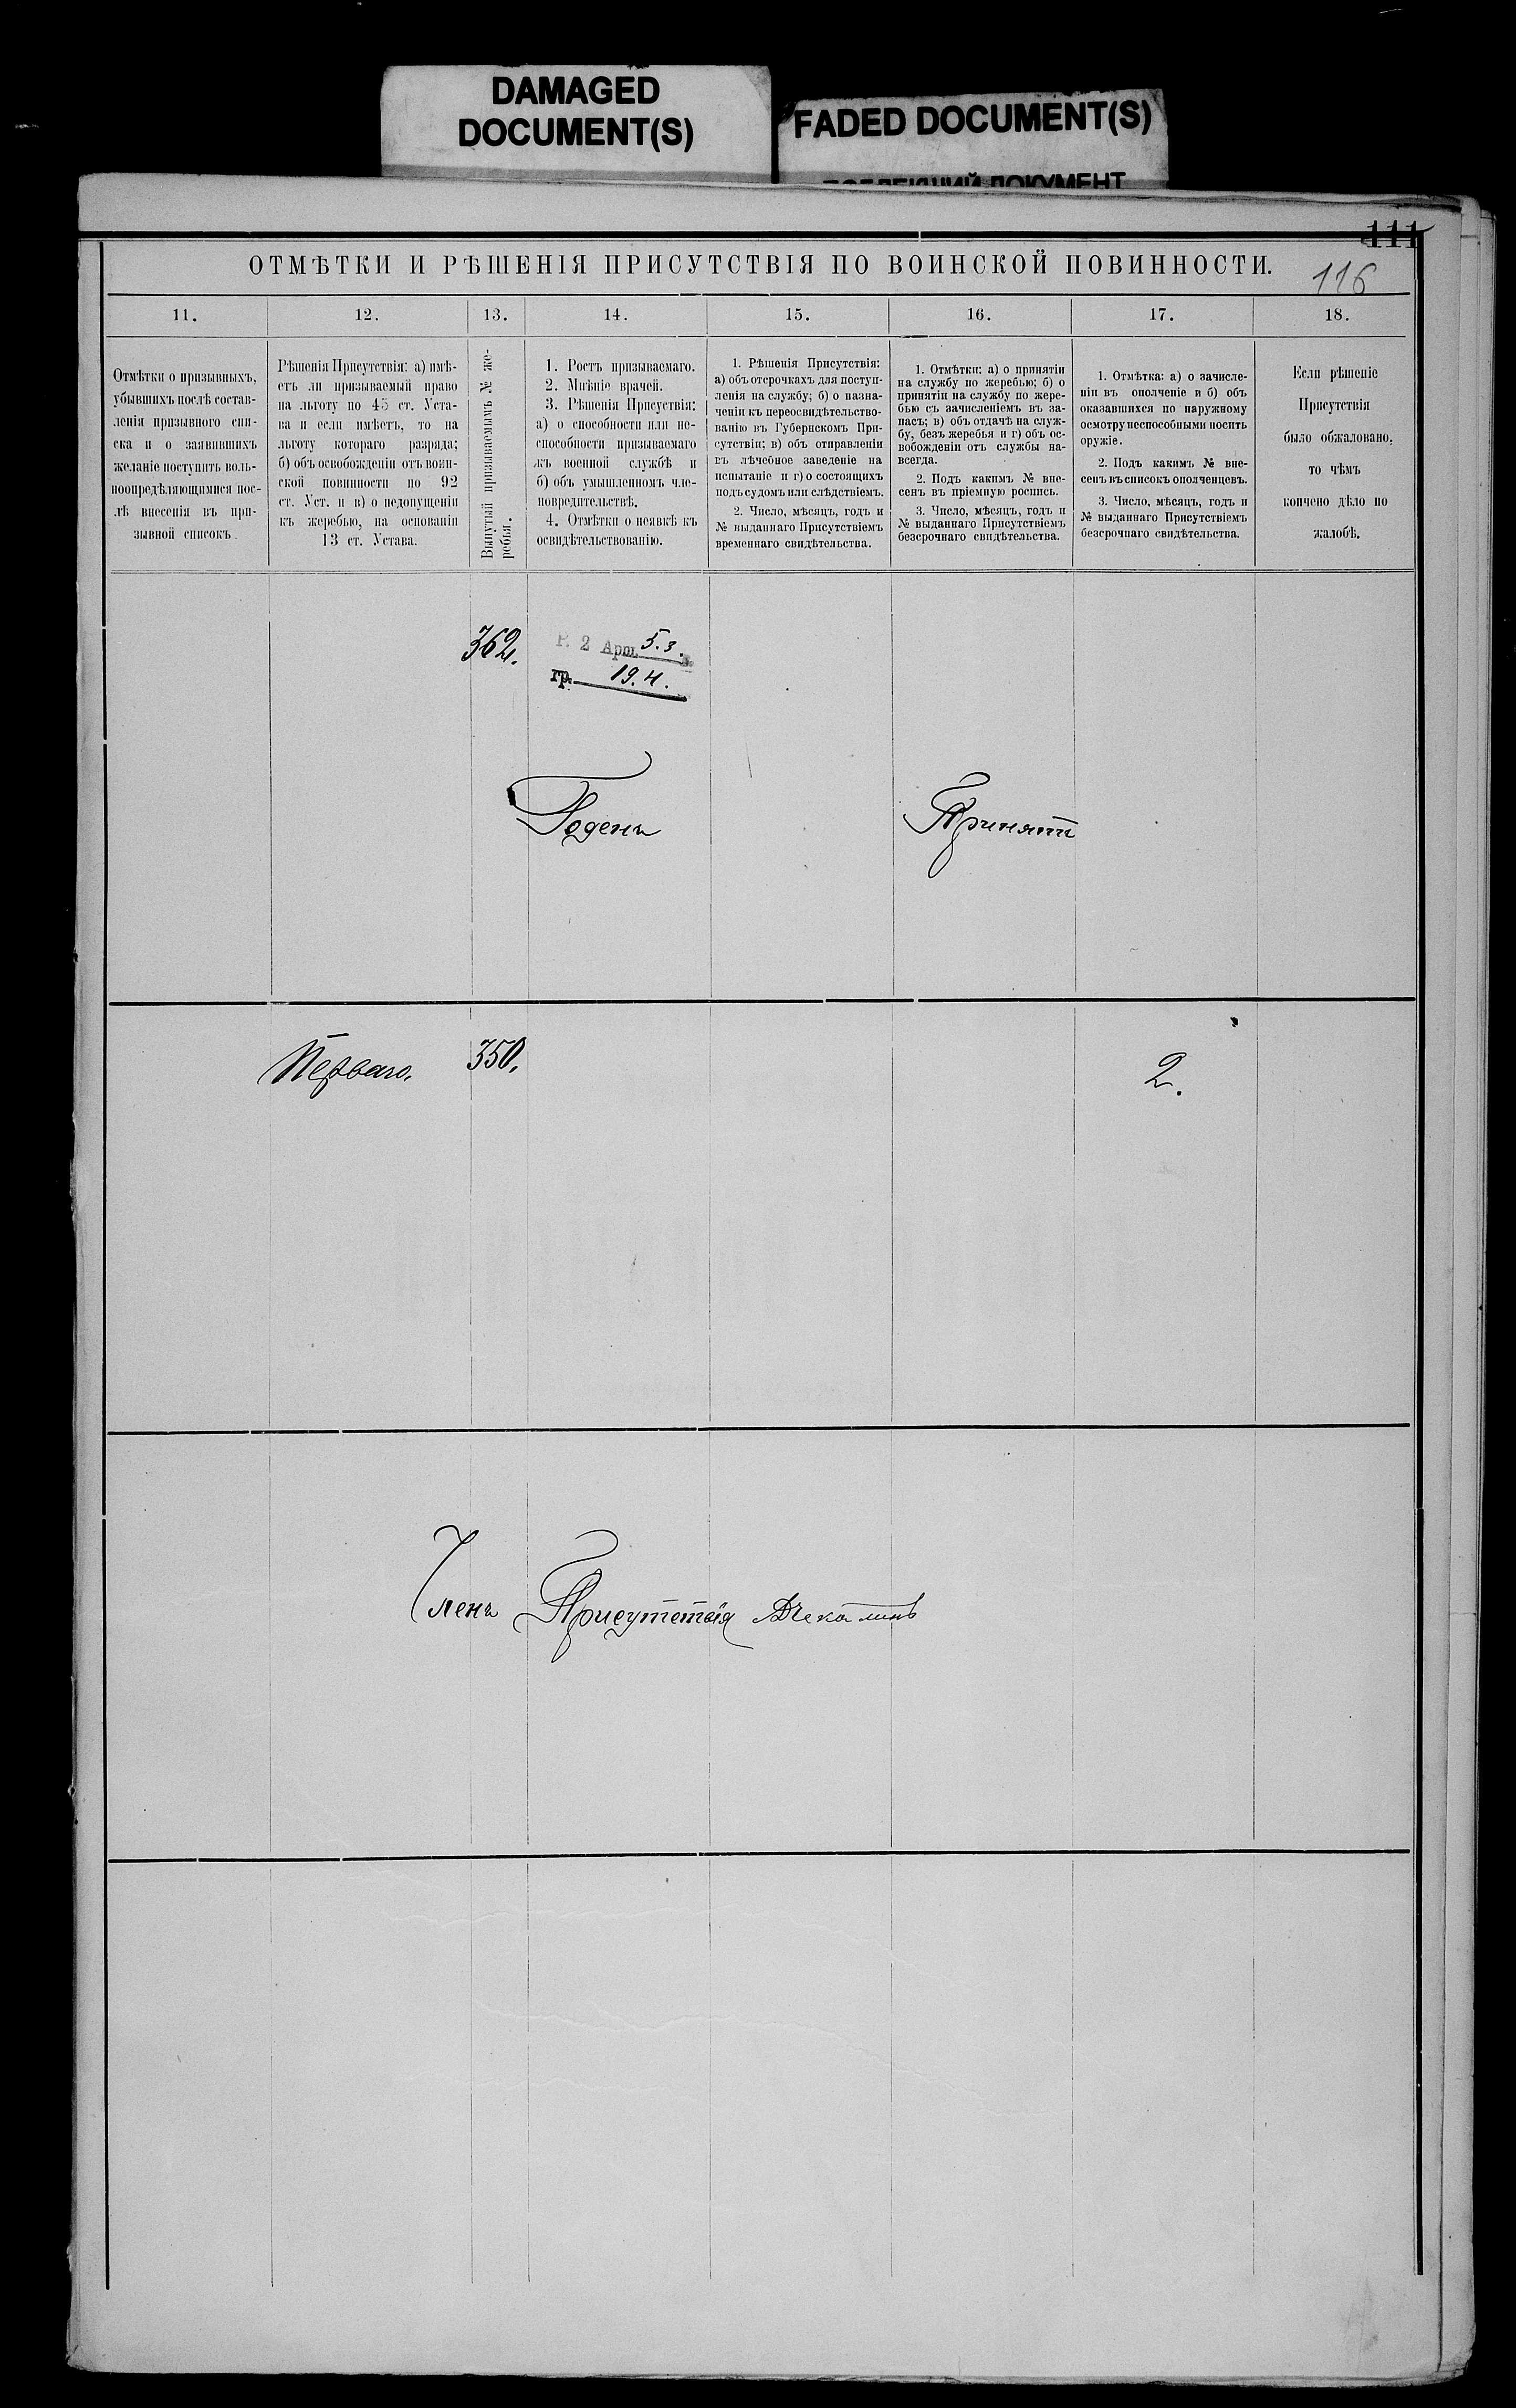 DAMAGED
DOCUMENT(S)
FADED DOCUMENT(S)
ДОКУМЕНТ
111
116
ОТМѢТКИ И РѢШЕНІЯ ПРИСУТСТВІЯ ПО ВОИНСКОЙ ПОВИННОСТИ.
11.
12.
13.
14.
15.
16.
17.
18.
Отмѣтки о призывныхъ,
убывшихъ послѣ состав-
ленія призывного спи-
ска и о заявившихъ
желаніе поступить воль-
ноопредѣляющимися пос-
лѣ внесенія въ при-
зывной списокъ.
Рѣшенія Присутствія: а) имѣ-
етъ ли призываемый право
на льготу по 45 ст. Уста-
ва и если имѣетъ, то на
льготу котораго разряда;
б) объ освобожденіи отъ воин-
ской повинности по 92
ст. Уст. и в) о недопущеніи
къ жеребью, на основаніи
13 ст. Устава.
Вынутый призываемымъ № же-
ребья.
1. Ростъ призываемаго.
2. Мнѣніе врачей.
3. Рѣшенія Присуствія:
а) о способности или не-
способности призываемаго
къ военной службѣ и
б) объ умышленномъ чле-
новредительствѣ.
4. Отмѣтки о неявкѣ къ
освидѣтельствованію.
1. Рѣшенія Присутствія:
а) объ отсрочкахъ для поступ-
ленія на службу; б) о назна-
ченіи къ переосвидѣтельство-
ванію въ Губернскомъ При-
сутствіи; в) объ отправленіи
въ лѣчебное заведеніе на
испытаніе и г) о состоящихъ
подъ судомъ или слѣдствіемъ.
2. Число, мѣсяцъ, годъ и
№ выданнаго Присутствіемъ
временнаго свидѣтельства.
1. Отмѣтки: а) о принятіи
на службу по жеребью; б) о
принятіи на службу по жере-
бью съ зачисленіемъ въ за-
пасъ; в) объ отдачѣ на служ-
бу, безъ жеребья и г) объ ос-
вобожденіи отъ службы на-
всегда.
2. Подъ какимъ № вне-
сенъ въ пріемную роспись.
3. Число, мѣсяцъ, годъ и
№ выданнаго Присутствіемъ
безсрочнаго свидѣтельства.
1. Отмѣтка: а) о зачисле-
ніи въ ополченіе и б) объ
оказавшихся по наружному
осмотру неспособными носить
оружіе.
2. Подъ какимъ № вне-
сенъ въ списокъ ополченцевъ.
3. Число, мѣсяцъ, годъ и
№ выданнаго Присутствіемъ
безсрочнаго свидѣтельства.
Если рѣшеніе
Присутствія
было обжаловано,
то чѣмъ
кончено дѣло по
жалобѣ.
362.
Р. 2 Арш. 5.3.
гр. 19.4.
Годенъ
Принятъ
Перваго.
350.
2.
Членъ Присутствія